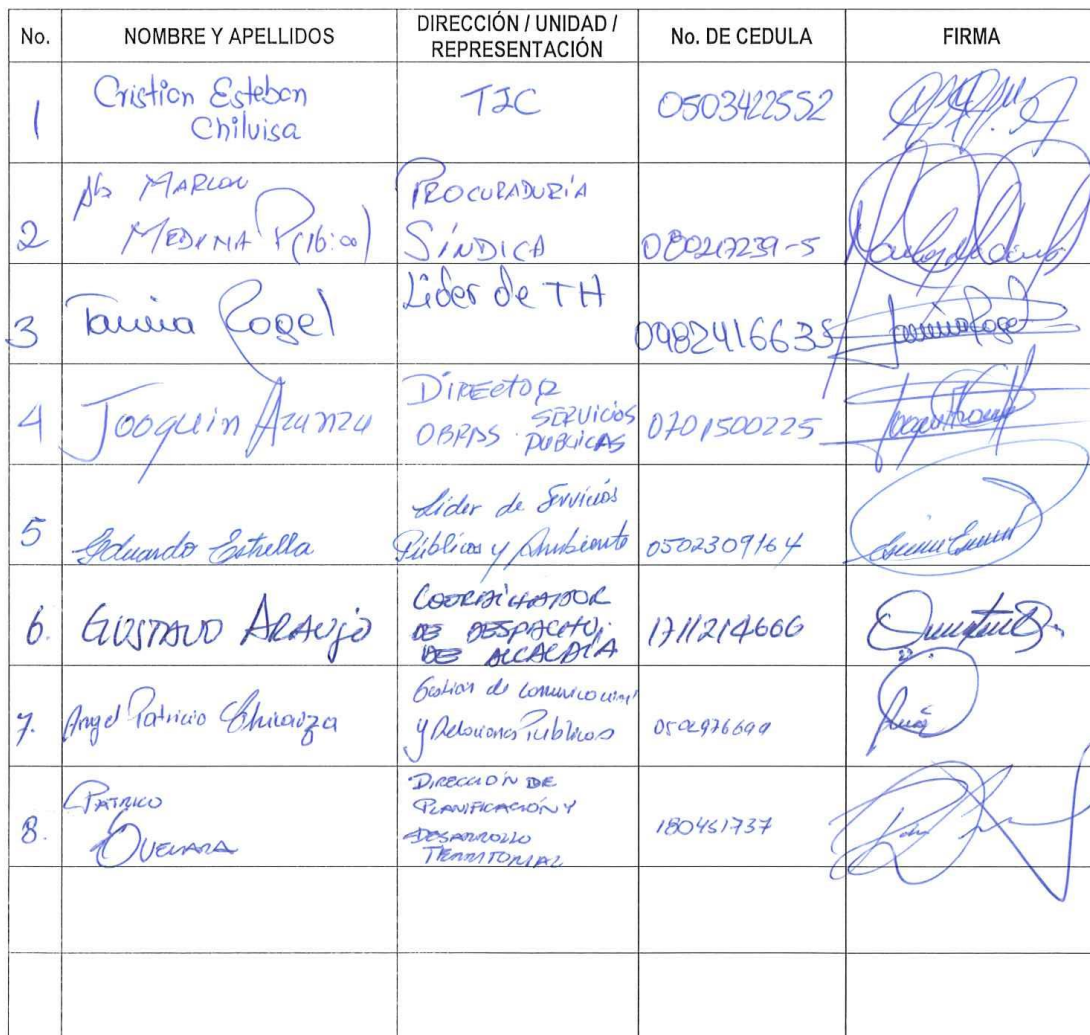 No. NOMBRE Y APELLIDOS DIRECCIÓN / UNIDAD / REPRESENTACIÓN No. DE CEDULA FIRMA
1 Cristian Esteban Chiluisa TIC 0503422552
2 Ab MARLON MEDINA P (16:00) PROCURADURÍA SÍNDICA 080217239-5
3 Tannia Rogel Lider de TH
4 Jooquin Azanza DIRECTOR OBRAS SERVICIOS PUBLICAS 0701500225
5 Eduardo Estrella Lider de Servicios Públicos y Ambiente 0502309164
6. GUSTAVO ARAUJO COORDINADOR DE DESPACHO DE ALCALDIA 1711214666
7. Angel Patricio Gestion de comunicacional y Relaciones Publicas
8. PATRICO GUEVARA DIRECCIÓN DE PLANIFICACIÓN Y DESARROLLO TERRITORIAL 180451737